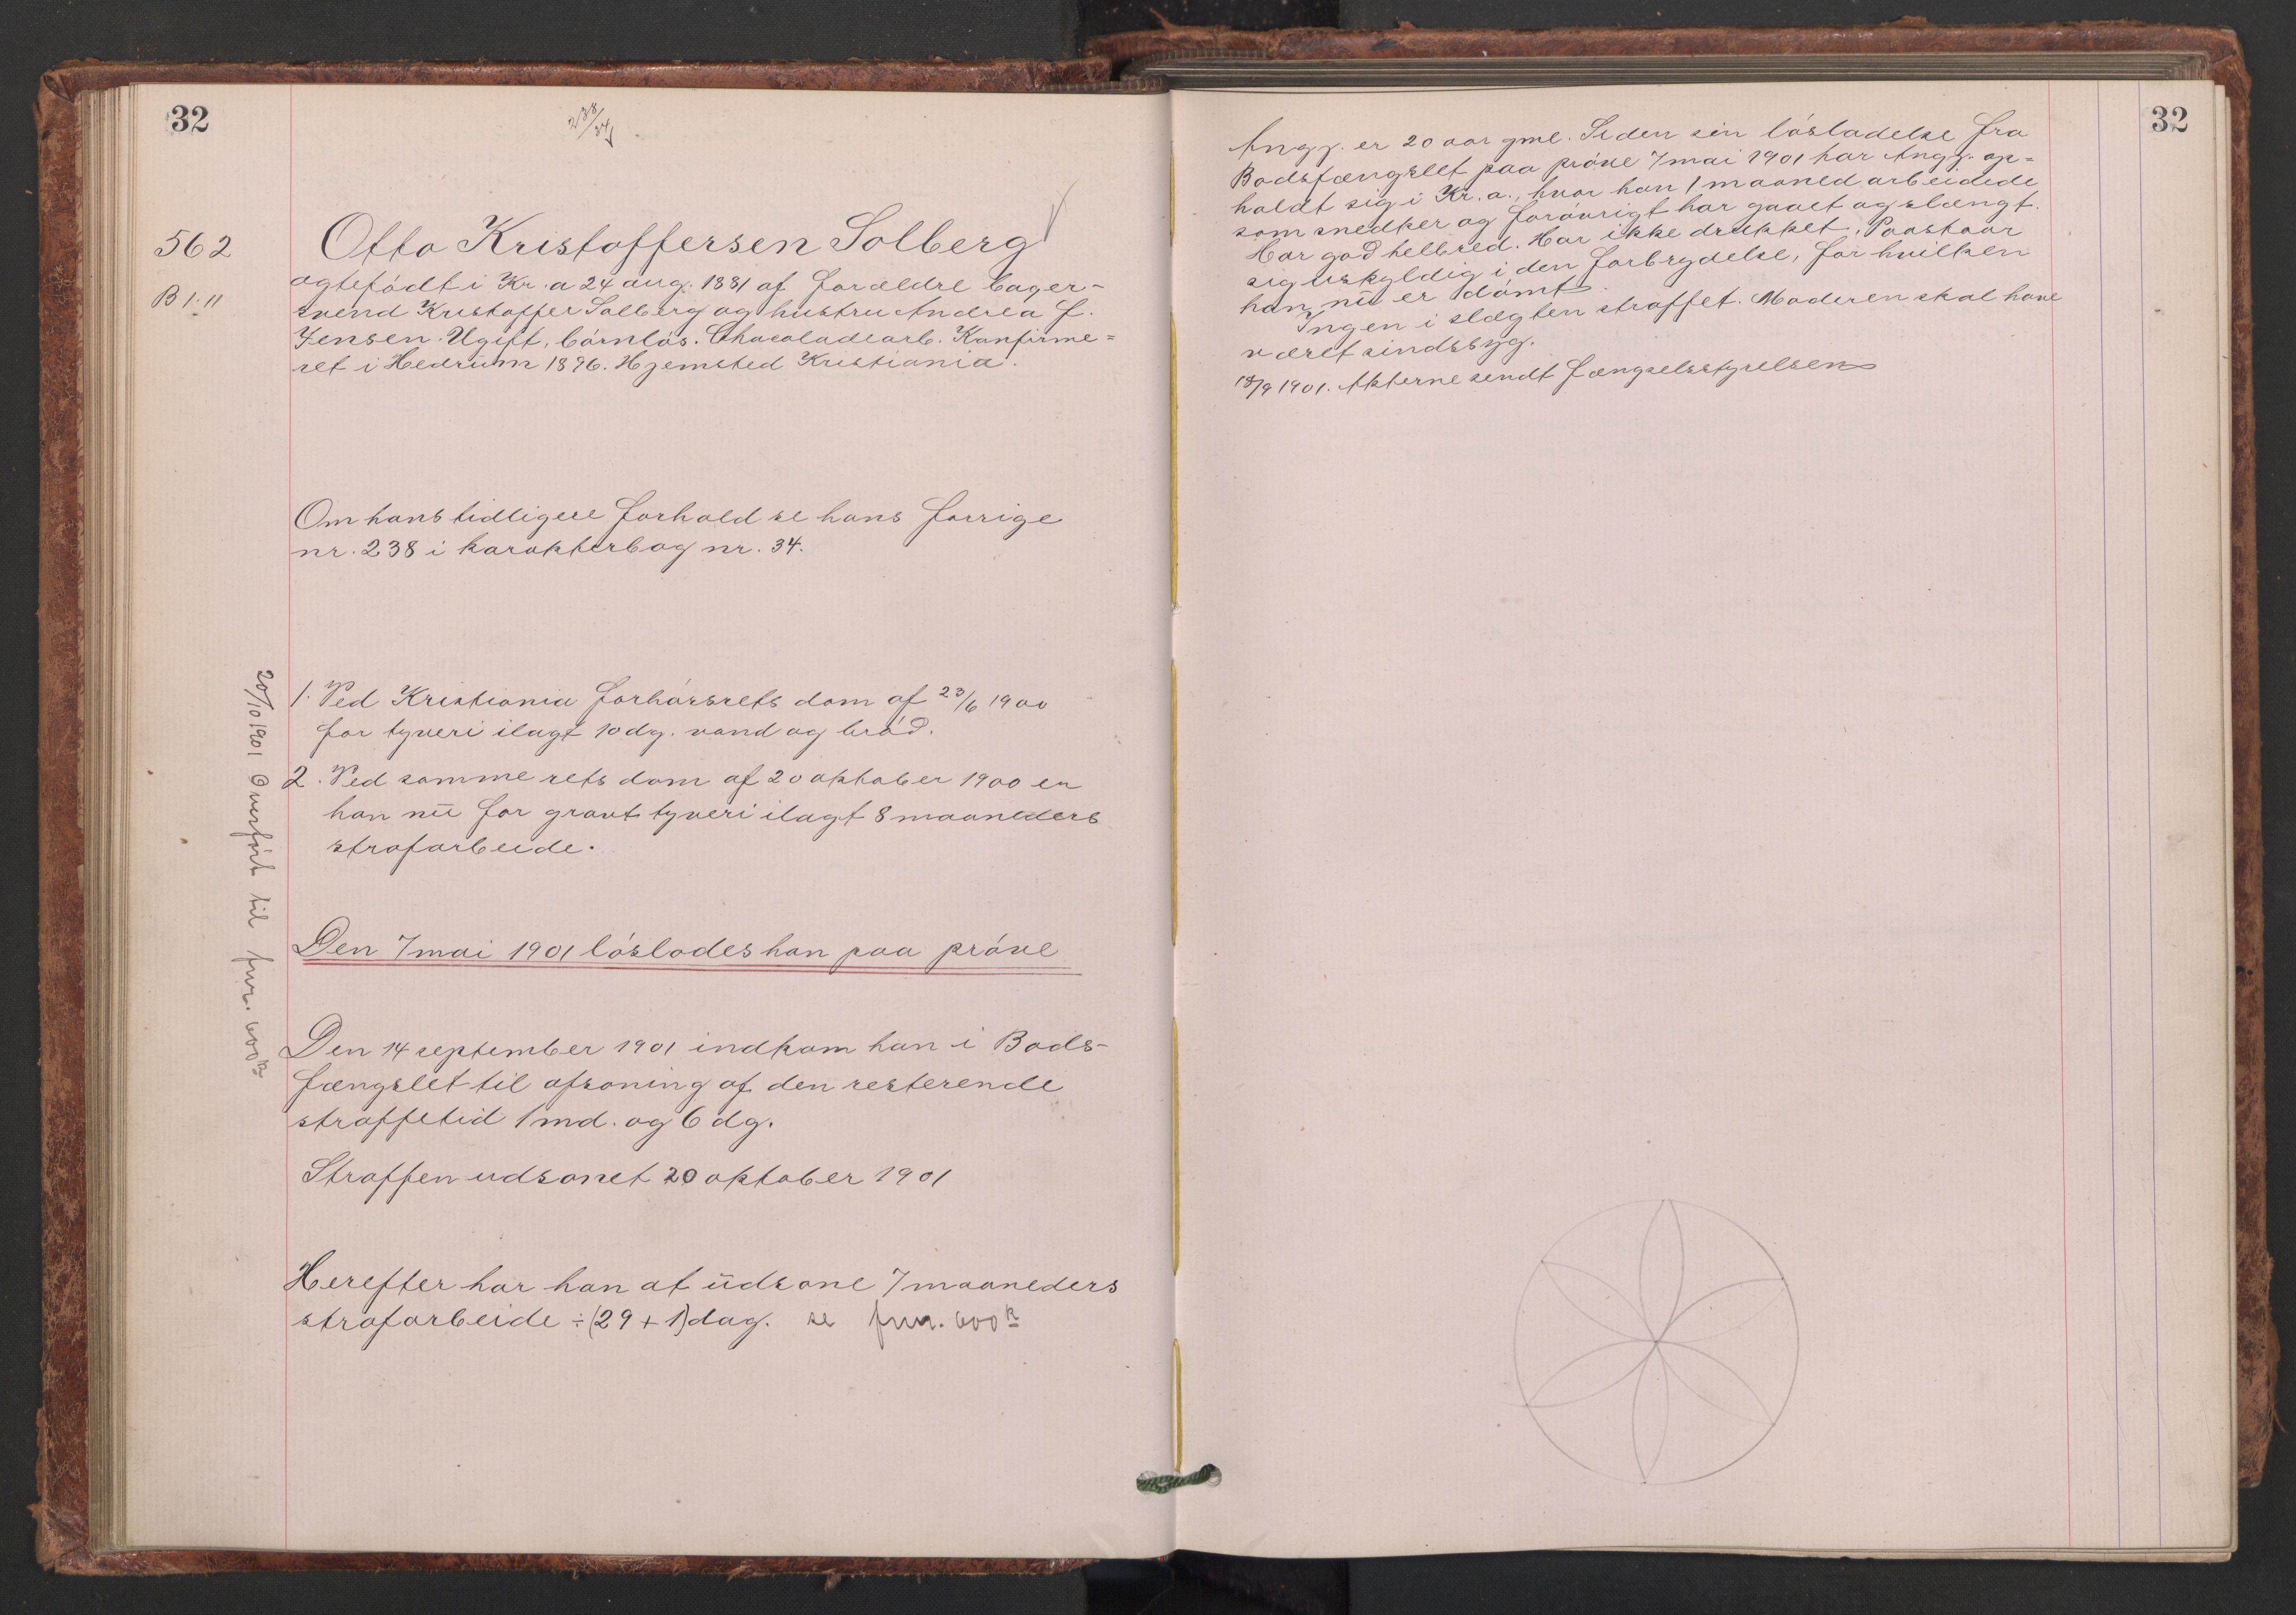 32
238/34
562
B 1. 11
Otto Kristoffersen Solberg
ægtefødt i Kr.a 24 aug. 1881 af forældre bager-
svend Kristoffer Solberg og hustru Andrea f.
Jensen. Ugift, børnløs. Chocoladearb. Konfirme=
ret i Hedrum 1896. Hjemsted Kristiania.
Om hans tidligere forhold se hans forrige
nr. 238 i karakterbog nr. 34.
1. Ved Kristiania forhørsrets dom af 23/6 1900
for tyveri ilagt 10 dg. vand og brød.
2. Ved samme rets dom af 20 oktober 1900 er
han nu for grovt tyveri ilagt 8 maaneders
strafarbeide.
Den 7 mai 1901 løslodes han paa prøve
Den 14 september 1901 indkom han i Bods-
fængslet til afsoning af den resterende
straffetid 1 md. og 6 dg.
Straffen udsonet 20 oktober 1901
Herefter har han at udsone 7 maaneders
strafarbeide ÷ (29 + 1) dag. se fnr. 600 B
20/10 1901 Overført til fnr. 600 B
32
Angj. er 20 aar gml. Siden sin løsladelse fra
Bodsfængslet paa prøve 7 mai 1901 har Angj. op=
holdt sig i Kr.a., hvor han 1 maaned arbeidede
som snedker og forøvrigt har gaaet og slængt.
Har god helbred. Har ikke drukket. Paastaar
sig uskyldig i den forbrydelse, for hvilken
han nu er dømt.
Ingen i slægten straffet. Moderen skal have
været sindssyg.
18/9 1901. Akterne sendt Fængselsstyrelsen